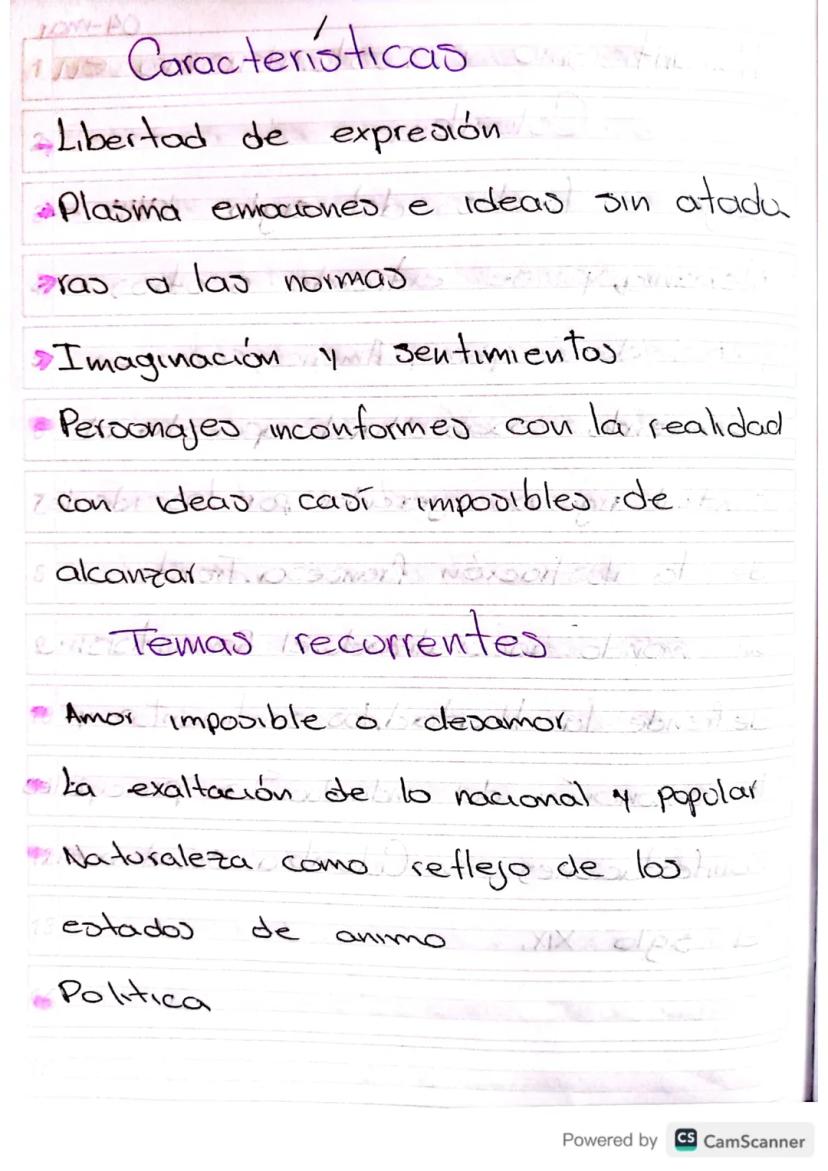 Características
Libertad de expresión
Plasma emociones e ideas sin atadu
ras a las normas
Imaginación y sentimientos
Personajes inconformes con la realidad
7 con ideas casí imposibles de
alcanzar
Temas recurrentes
Amor imposible o desamor
La exaltación de lo nacional y popular
Naturaleza como reflejo de los
estados de animo
Politica
Powered by CS CamScanner